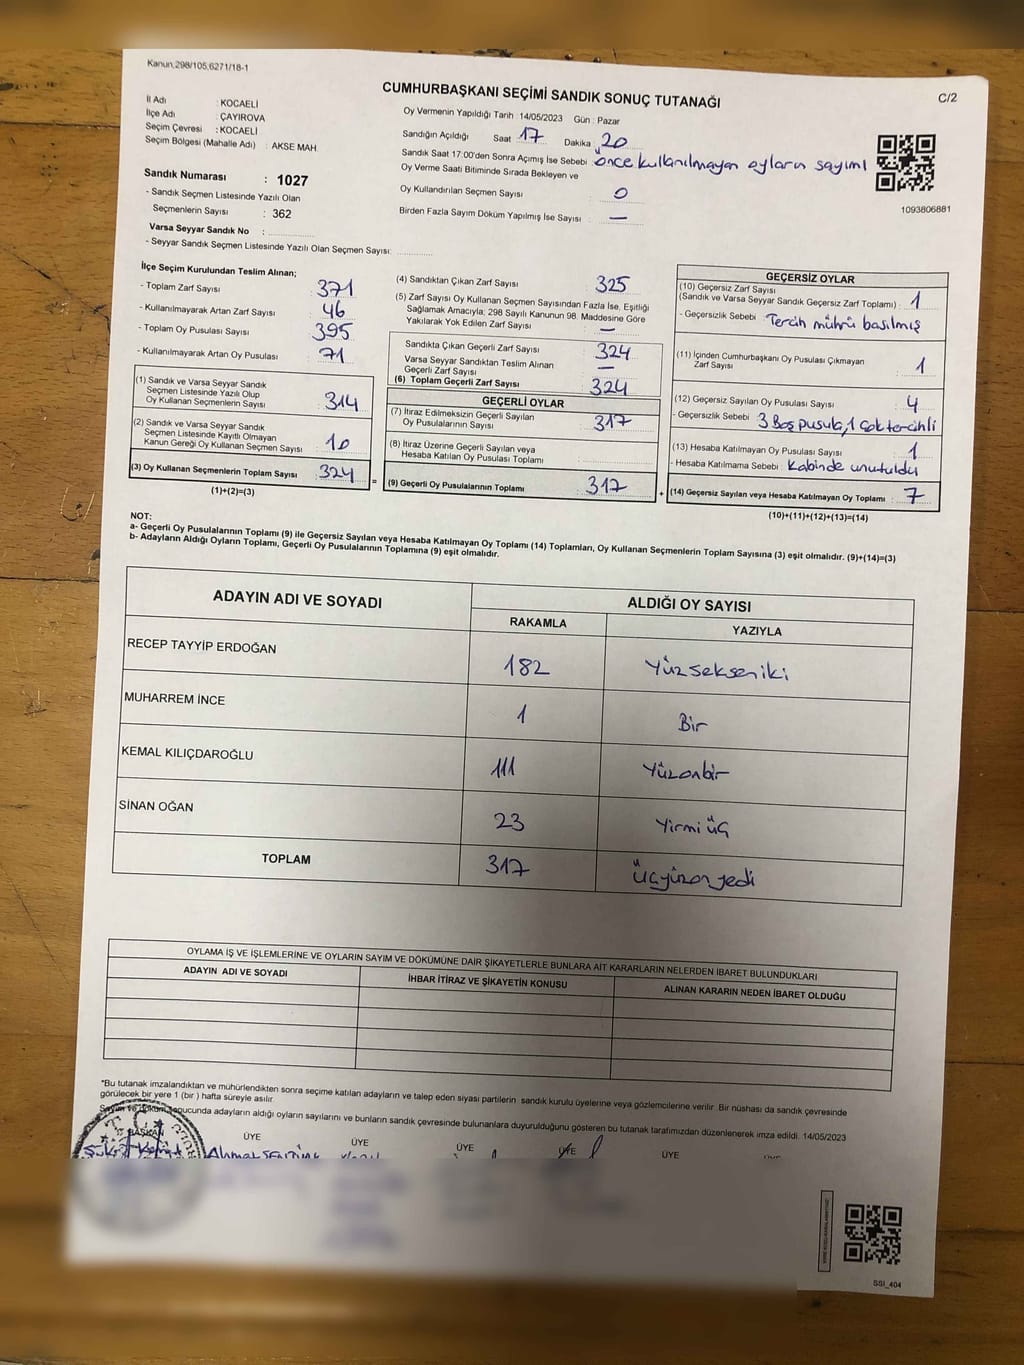 Kanun;298/105;6271/18-1
CUMHURBAŞKANI SEÇİMİ SANDIK SONUÇ TUTANAĞI
C/2
İl Adı : KOCAELİ
İlçe Adı : ÇAYIROVA
Seçim Çevresi : KOCAELİ
Seçim Bölgesi (Mahalle Adı) : AKSE MAH.
Sandık Numarası : 1027
- Sandık Seçmen Listesinde Yazılı Olan
Seçmenlerin Sayısı : 362
Varsa Seyyar Sandık No :
- Seyyar Sandık Seçmen Listesinde Yazılı Olan Seçmen Sayısı:
Oy Vermenin Yapıldığı Tarih : 14/05/2023 Gün : Pazar
Sandığın Açıldığı Saat 17 Dakika 20
Sandık Saat 17:00'den Sonra Açımış İse Sebebi : önce kullanılmayan oyların sayımı
Oy Verme Saati Bitiminde Sırada Bekleyen ve
Oy Kullandırılan Seçmen Sayısı : 0
Birden Fazla Sayım Döküm Yapılmış İse Sayısı : —
1093806881
İlçe Seçim Kurulundan Teslim Alınan;
- Toplam Zarf Sayısı : 371
- Kullanılmayarak Artan Zarf Sayısı : 46
- Toplam Oy Pusulası Sayısı : 395
- Kullanılmayarak Artan Oy Pusulası : 71
(1) Sandık ve Varsa Seyyar Sandık
Seçmen Listesinde Yazılı Olup
Oy Kullanan Seçmenlerin Sayısı : 314
(2) Sandık ve Varsa Seyyar Sandık
Seçmen Listesinde Kayıtlı Olmayan
Kanun Gereği Oy Kullanan Seçmen Sayısı : 10
(3) Oy Kullanan Seçmenlerin Toplam Sayısı : 324
(1)+(2)=(3)
=
(4) Sandıktan Çıkan Zarf Sayısı : 325
(5) Zarf Sayısı Oy Kullanan Seçmen Sayısından Fazla İse, Eşitliği
Sağlamak Amacıyla; 298 Sayılı Kanunun 98. Maddesine Göre
Yakılarak Yok Edilen Zarf Sayısı : —
Sandıkta Çıkan Geçerli Zarf Sayısı : 324
Varsa Seyyar Sandıktan Teslim Alınan
Geçerli Zarf Sayısı : —
(6) Toplam Geçerli Zarf Sayısı : 324
GEÇERLİ OYLAR
(7) İtiraz Edilmeksizin Geçerli Sayılan
Oy Pusulalarının Sayısı : 317
(8) İtiraz Üzerine Geçerli Sayılan veya
Hesaba Katılan Oy Pusulası Toplamı :
(9) Geçerli Oy Pusulalarının Toplamı : 317
+
GEÇERSİZ OYLAR
(10) Geçersiz Zarf Sayısı
(Sandık ve Varsa Seyyar Sandık Geçersiz Zarf Toplamı) : 1
- Geçersizlik Sebebi : Tercih mührü basılmış
(11) İçinden Cumhurbaşkanı Oy Pusulası Çıkmayan
Zarf Sayısı : 1
(12) Geçersiz Sayılan Oy Pusulası Sayısı : 4
- Geçersizlik Sebebi : 3 Boş pusula, 1 çok tercihli
(13) Hesaba Katılmayan Oy Pusulası Sayısı : 1
- Hesaba Katılmama Sebebi : kabinde unutuldu
(14) Geçersiz Sayılan veya Hesaba Katılmayan Oy Toplamı : 7
(10)+(11)+(12)+(13)=(14)
NOT:
a- Geçerli Oy Pusulalarının Toplamı (9) ile Geçersiz Sayılan veya Hesaba Katılmayan Oy Toplamı (14) Toplamları, Oy Kullanan Seçmenlerin Toplam Sayısına (3) eşit olmalıdır. (9)+(14)=(3)
b- Adayların Aldığı Oyların Toplamı, Geçerli Oy Pusulalarının Toplamına (9) eşit olmalıdır.
ADAYIN ADI VE SOYADI
ALDIĞI OY SAYISI
RAKAMLA YAZIYLA
RECEP TAYYİP ERDOĞAN 182 Yüzsekseniki
MUHARREM İNCE 1 Bir
KEMAL KILIÇDAROĞLU 111 Yüzonbir
SİNAN OĞAN 23 Yirmi üç
TOPLAM 317 Üçyüzonyedi
OYLAMA İŞ VE İŞLEMLERİNE VE OYLARIN SAYIM VE DÖKÜMÜNE DAİR ŞİKAYETLERLE BUNLARA AİT KARARLARIN NELERDEN İBARET BULUNDUKLARI
ADAYIN ADI VE SOYADI İHBAR İTİRAZ VE ŞİKAYETİN KONUSU ALINAN KARARIN NEDEN İBARET OLDUĞU
*Bu tutanak imzalandıktan ve mühürlendikten sonra seçime katılan adayların ve talep eden siyasi partilerin sandık kurulu üyelerine veya gözlemcilerine verilir. Bir nüshası da sandık çevresinde
görülecek bir yere 1 (bir) hafta süreyle asılır.
Sayım ve döküm sonucunda adayların aldığı oyların sayılarını ve bunların sandık çevresinde bulunanlara duyurulduğunu gösteren bu tutanak tarafımızdan düzenlenerek imza edildi. 14/05/2023
T.C.
BAŞKAN ÜYE ÜYE ÜYE ÜYE ÜYE
SSİ_404